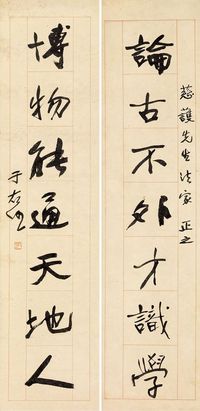 慈護先生法家正之
論古不外才識學
博物能通天地人
于右任